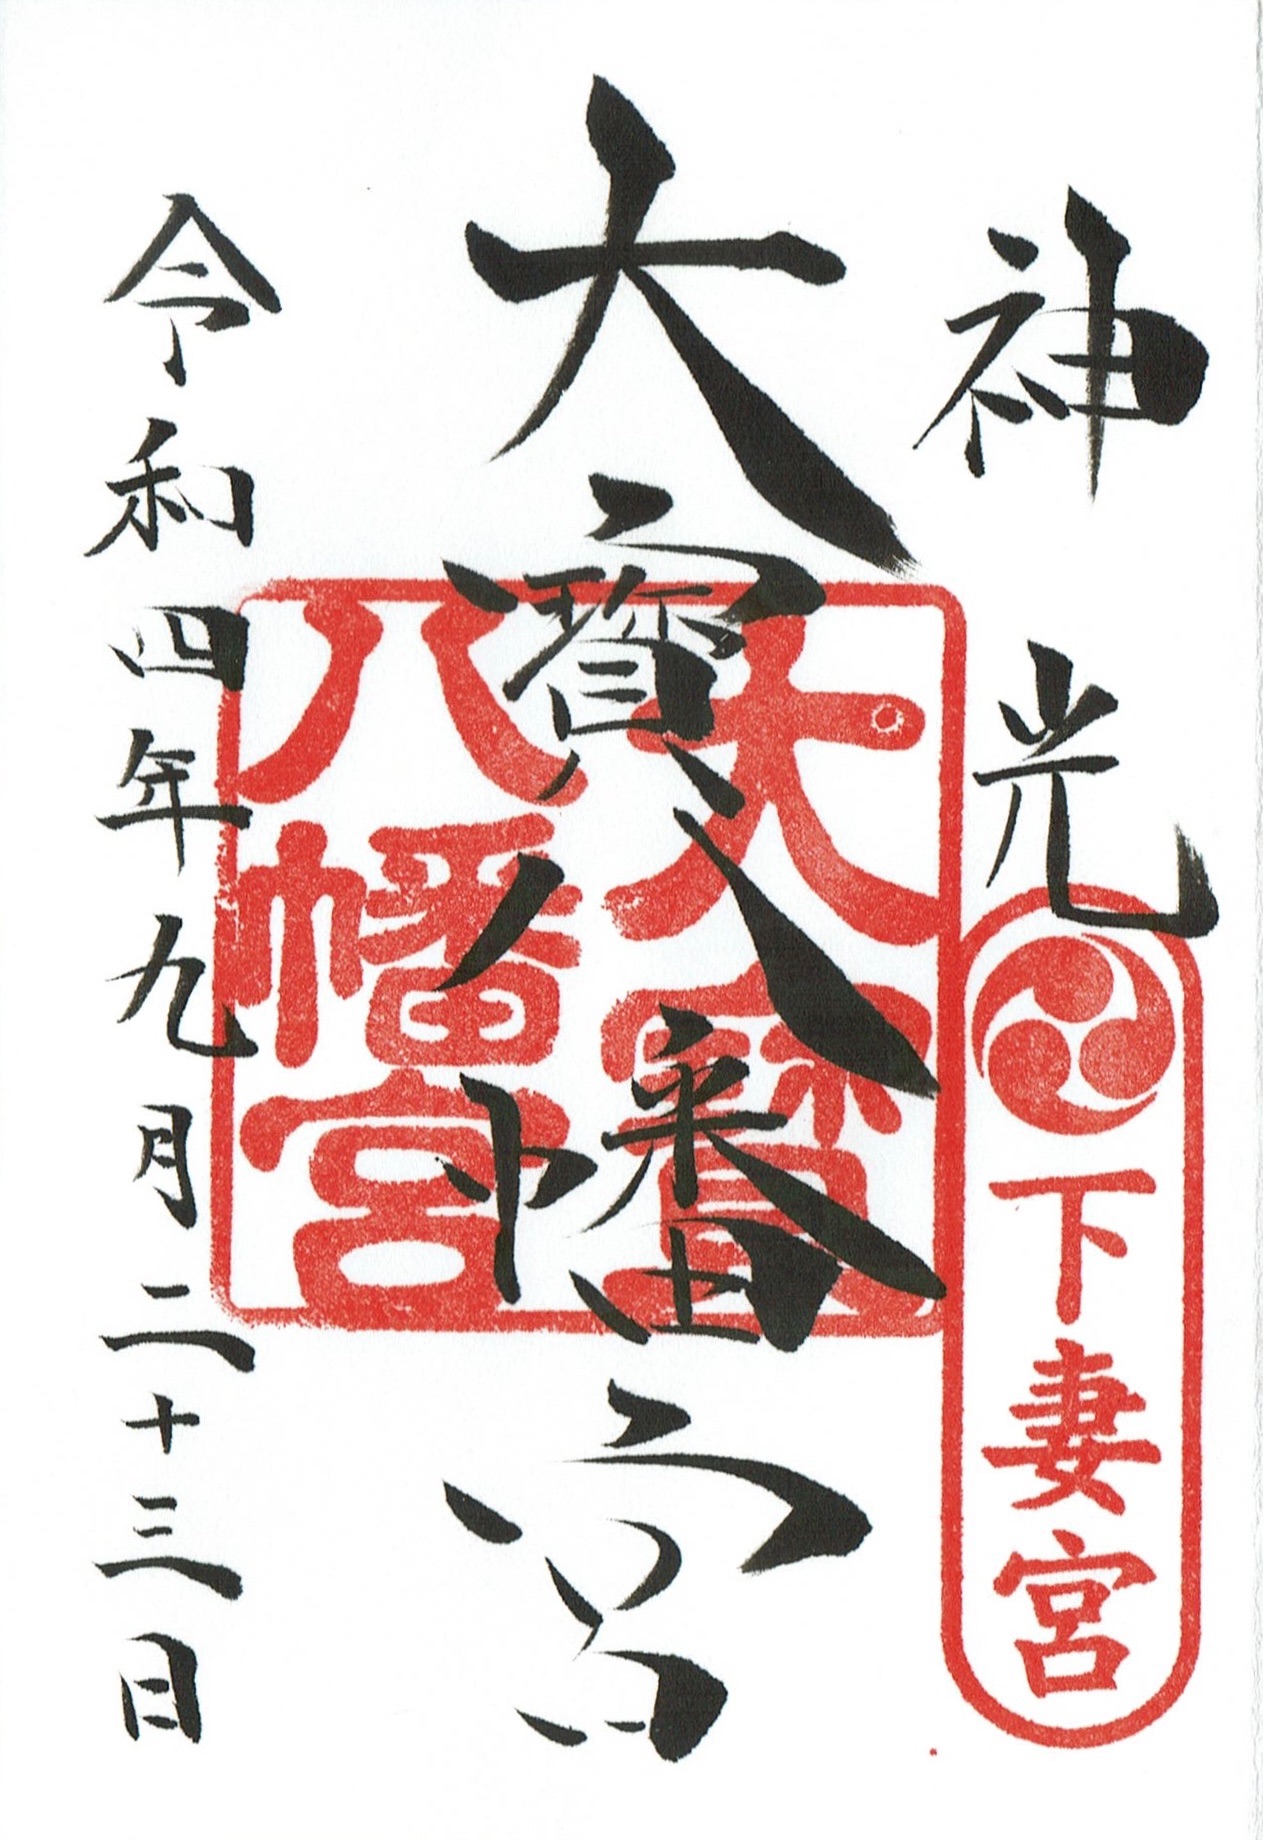 神光
下妻宮
大寳八幡宮
大寳
八幡宮
令和四年九月二十三日